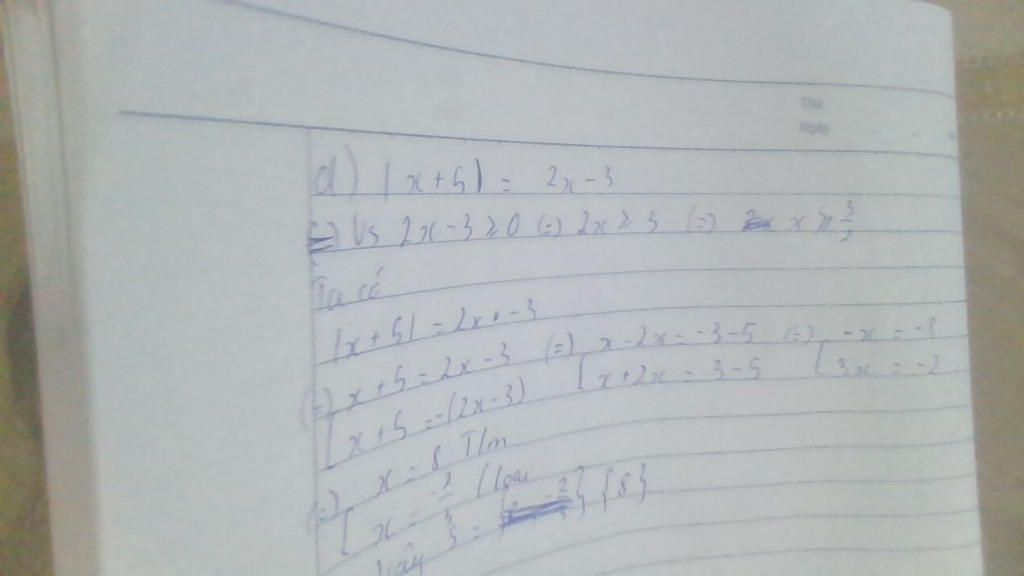 Thứ
Ngày
d) |x+5| = 2x-3
Vs 2x-3 ≥ 0 (=) 2x ≥ 3 (=) x ≥ 3/2
Ta có
|x+5| = 2x-3
(=) [ x+5 = 2x-3 (=) [ x-2x = -3-5 (=) [ -x = -8
x+5 = -(2x-3) x+2x = 3-5 3x = -2
(=) [ x = 8 T/m
x = -2/3 (loại
Vậy S = {8}